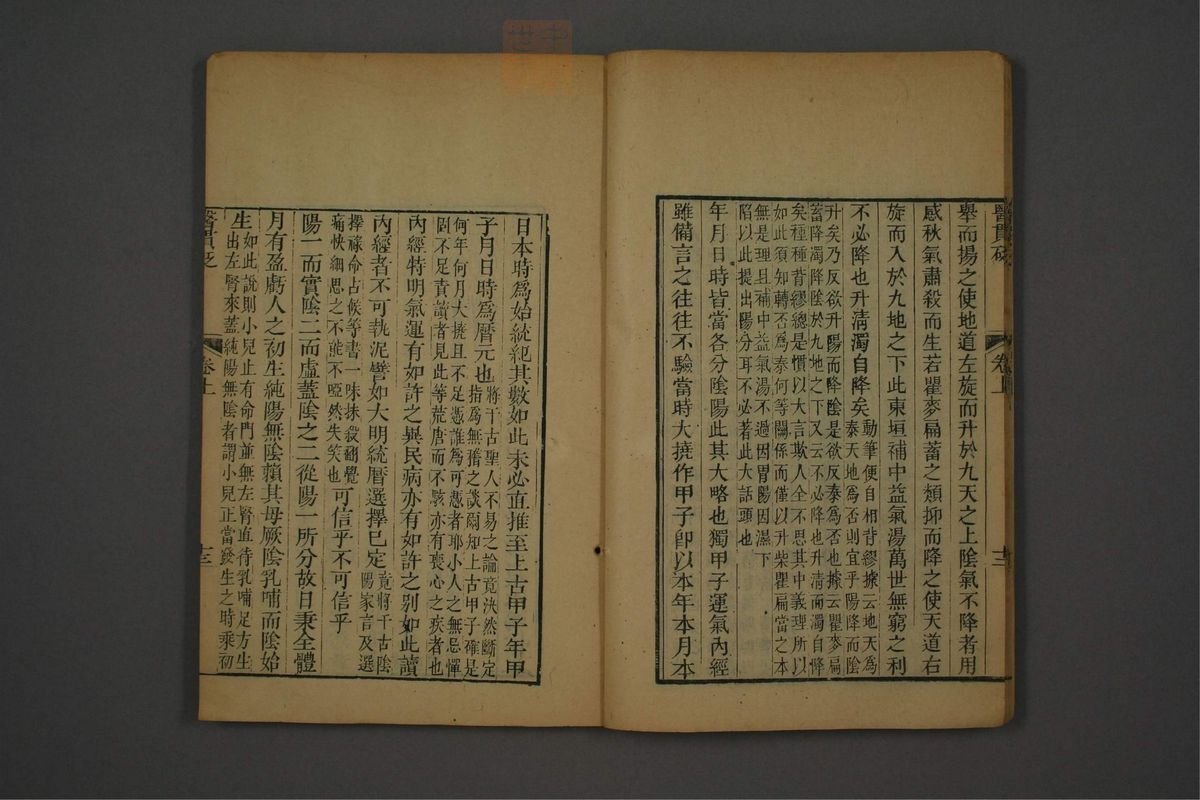 醫貫砭
卷上
十三
舉而揚之使地道左旋而升於九天之上陰氣不降者用
感秋氣肅殺而生若瞿麥扁蓄之類抑而降之使天道右
旋而入於九地之下此東垣補中益氣湯萬世無窮之利
不必降也升清濁自降矣
動筆便自相背繆據云地天為
泰天地為否則宜乎陽降而陰
升矣乃反欲升陽而降陰是欲反泰為否也據云瞿麥扁
蓄降濁降陰於九地之下又云不必降也升清而濁自降
矣種種背繆總是慣以大言欺人全不思其中義理所以
如此須知轉否為泰何等關係而僅以升柴瞿扁當之本
無是理且補中益氣湯不過因胃陽因濕下
陷以此提出陽分耳不必著此大話頭也
年月日時皆當各分陰陽此其大略也獨甲子運氣內經
雖備言之往往不驗當時大撓作甲子即以本年本月本
日本時為始統紀其數如此未必直推至上古甲子年甲
子月日時為曆元也
將千古聖人不易之論竟決然斷定
指為無稽之談爾知上古甲子確是
何年何月大撓且不足憑誰為可憑者耶小人之無忌憚
固不足責讀者見此等荒唐而不駭亦有喪心之疾者也
內經特明氣運有如許之異民病亦有如許之别如此讀
內經者不可執泥譬如大明統曆選擇已定
竟將千古陰
陽家言及選
擇祿命占候等書一味抹殺翻覺
痛快細思之不能不啞然失笑也
可信乎不可信乎
陽一而實陰二而虛蓋陰之二從陽一所分故日秉全體
月有盈虧人之初生純陽無陰賴其母厥陰乳哺而陰始
生
如此說則小兒止有命門並無左腎直待乳哺足方生
出左腎來蓋純陽無陰者謂小兒正當發生之時乘初
醫貫砭
卷上
十三